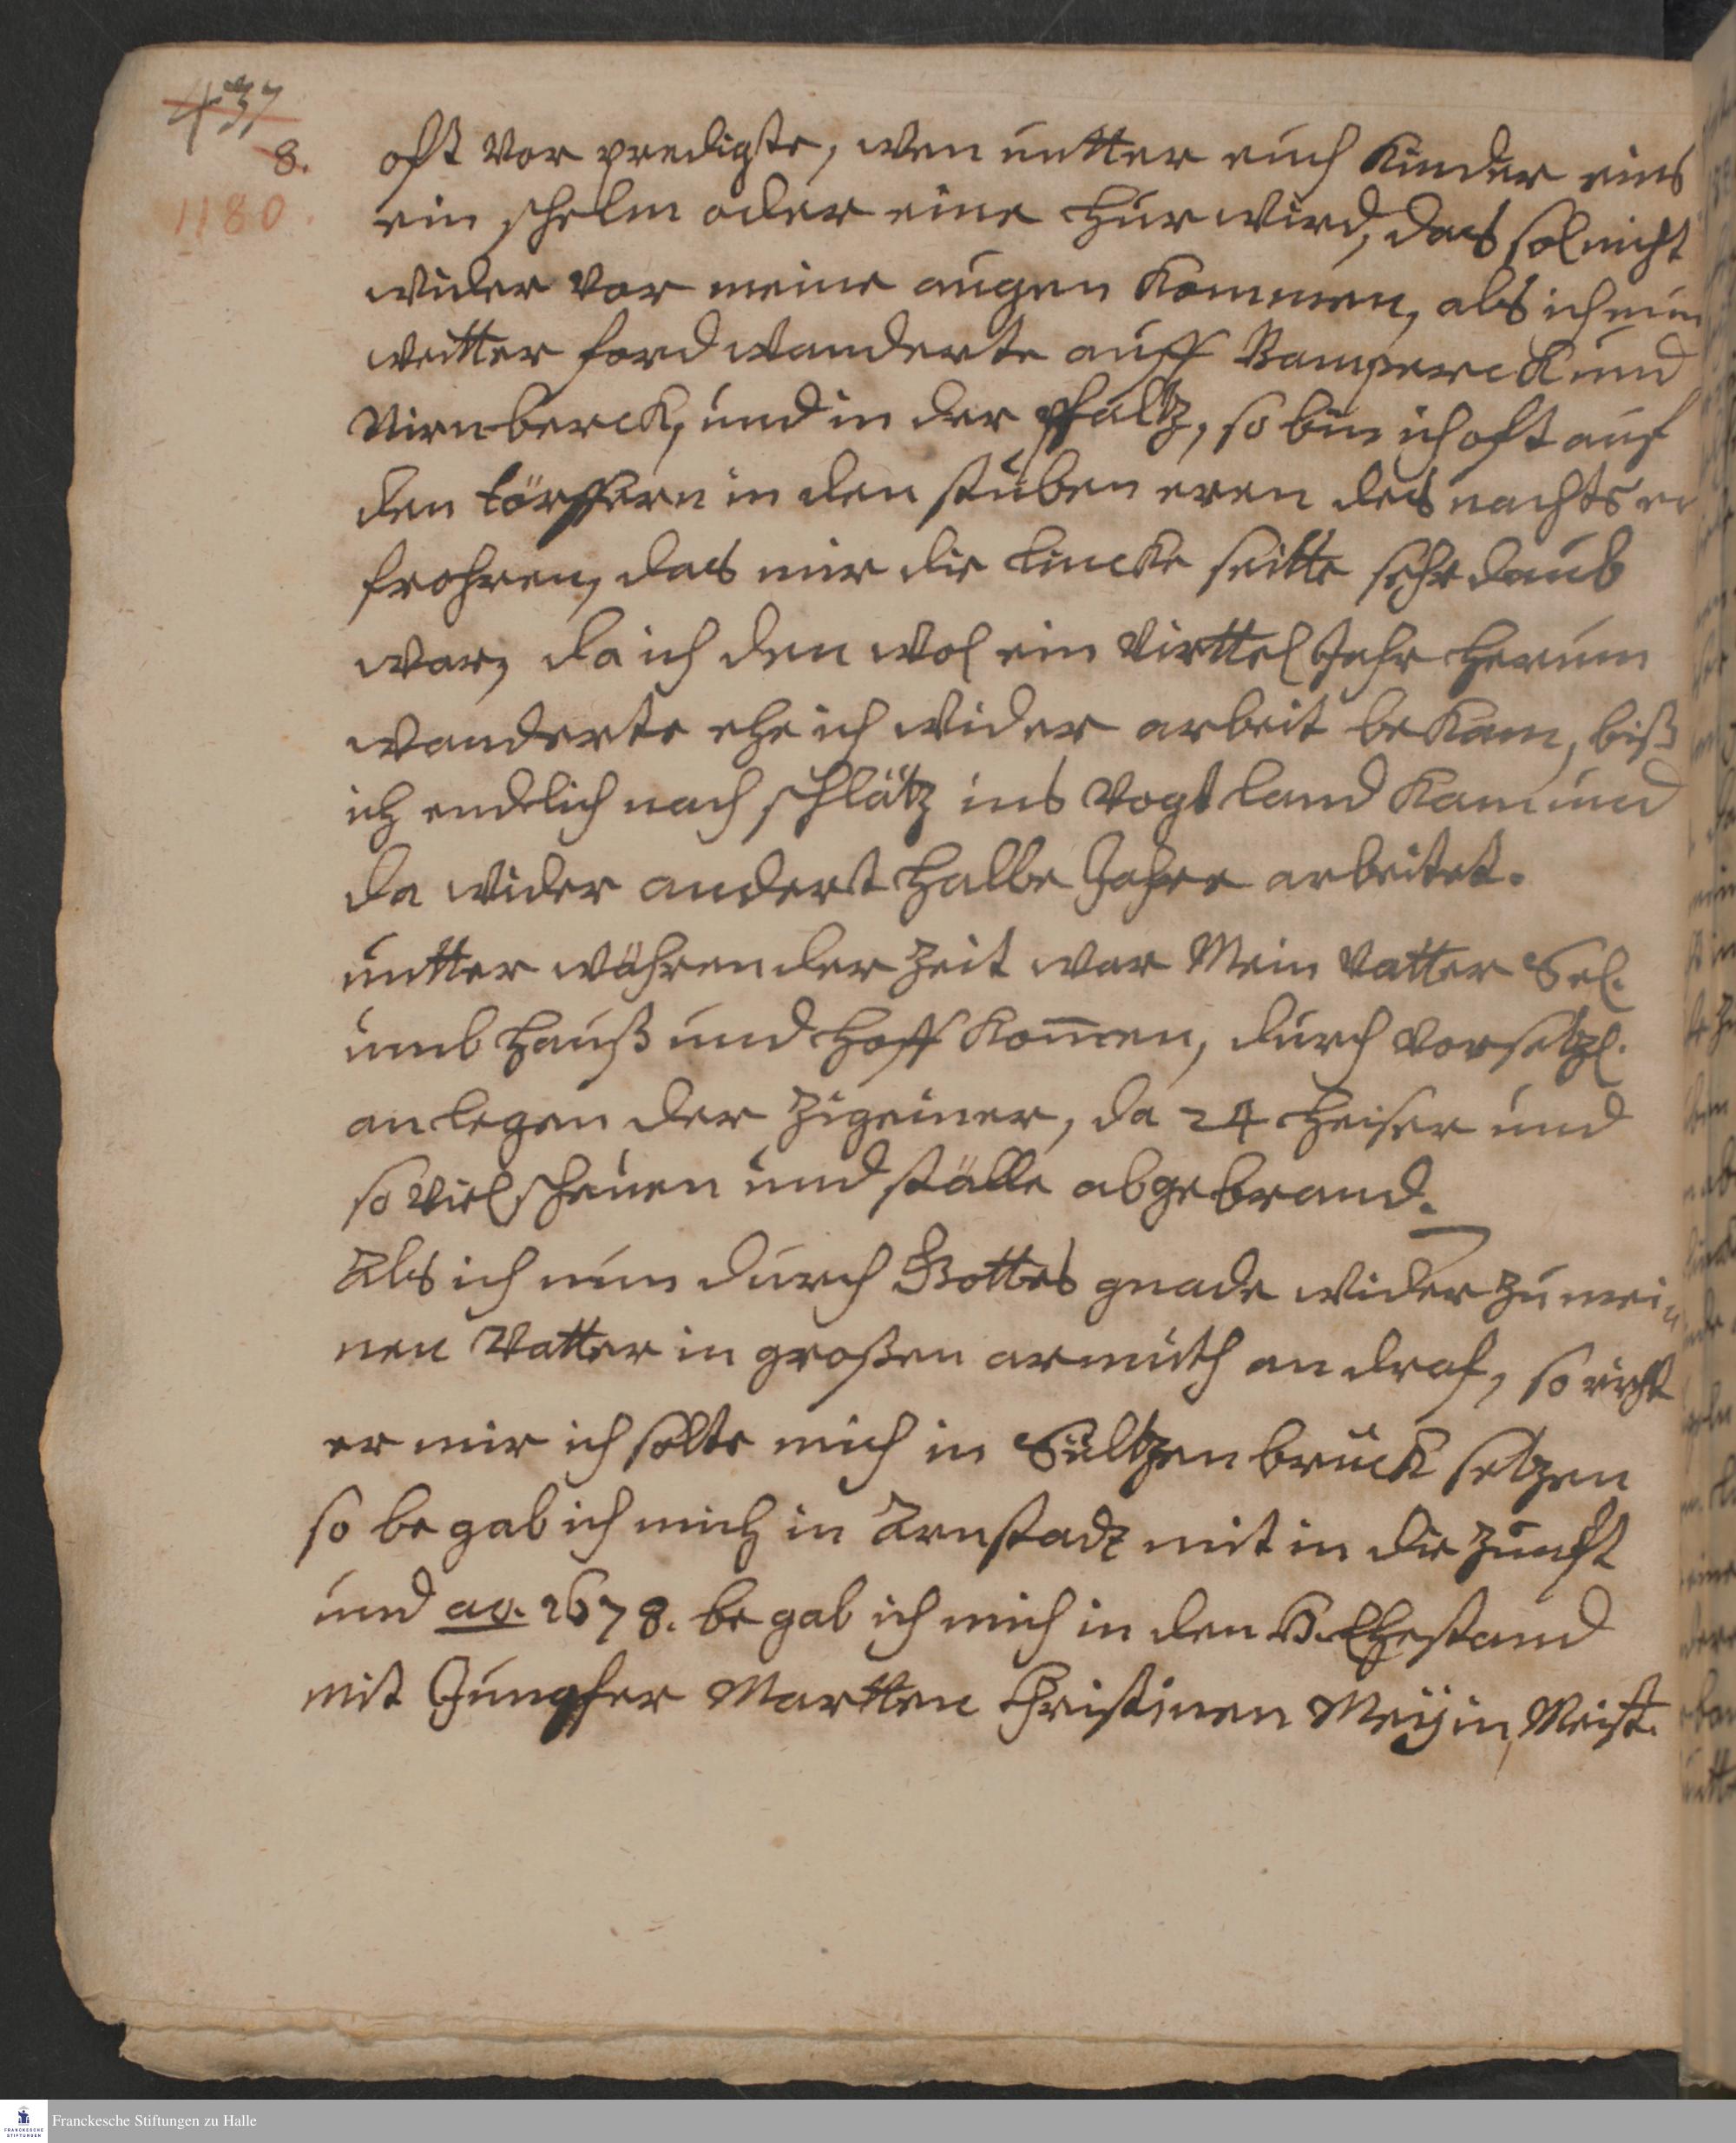 437
8.
1180.
oft vor predigte, wen untter euch Kinder eins
ein schelm oder eine hur wird, das sol nicht
wider vor meine augen kommen, als ich nun
weitter ford wanderte auff Bamperck und
Nirnberck, und in der pfaltz, so bin ich oft auf
den törffern in den stuben eren des nachts er
frohren, das mir die lincke seitte sehr daub
war, da ich den wol ein virttel Jahr herum
wanderte ehe ich wider arbeit bekam, biß
ich endlich nach schlätz ins vogtland kam und
da wider anderst halbe Jahre arbeitet.
untter währender zeit war Mein vatter Sel.
umb hauß und hoff kom̅en, durch vorsetzl.
anlegen der zigeiner, da 24 heiser und
so viel scheuen und ställe abgebrand.
Als ich nun durch Gottes gnade wider zu mei
nen Vatter in großen armuth an draf, so
er mir ich solte mich in Sültzenbrück setzen
so begab ich mich in Arnstadt mit in die zunfft
und ao. 1678. begab ich mich in den H. Ehestand
mit Jungfer Martten Christinen Meyin, Meist.
Franckesche Stiftungen zu Halle
FRANCKESCHE
STIFTUNGEN